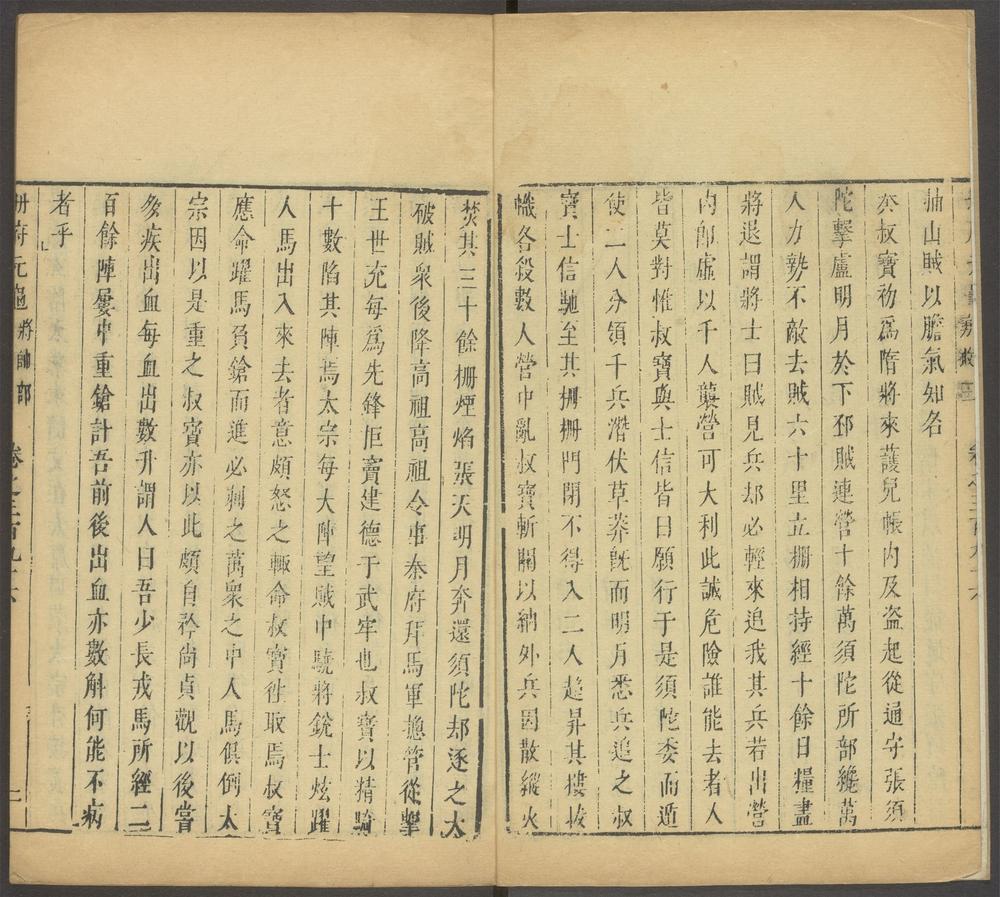 抽山賊以膽氣知名
秦叔寶初爲隋將來護兒帳內及盜起從通守張須
陀擊盧明月於下邳賊連營十餘萬須陀所部纔萬
人力勢不敵去賊六十里立柵相持經十餘日糧盡
將退謂將士曰賊見兵却必輕來追我其兵若出營
內卽虛以千人襲營可大利此誠危險誰能去者人
皆莫對惟叔寶與士信皆曰願行于是須陀委而遁
使二人分領千兵潛伏草莽旣而明月悉兵追之叔
寶士信馳至其柵柵門閉不得入二人超昇其樓拔
幟各殺數人營中亂叔寶斬關以納外兵因散縱火
焚其三十餘柵煙焰張天明月奔還須陀却逐之大
破賊衆後降高祖高祖令事秦府拜馬軍總管從擊
王世充每爲先鋒拒竇建德于武牢也叔寶以精騎
十數陷其陣焉太宗每大陣望賊中驍將銳士炫躍
人馬出入來去者意頗怒之輒命叔寶徃取焉叔寶
應命躍馬負鎗而進必刺之萬衆之中人馬俱倒太
宗因以是重之叔寶亦以此頗自矜尙貞觀以後嘗
多疾出血每血出數升謂人曰吾少長戎馬所經二
百餘陣屢中重鎗計吾前後出血亦數斛何能不病
者乎
冊府元龜 將帥部 卷之三百九十六 二